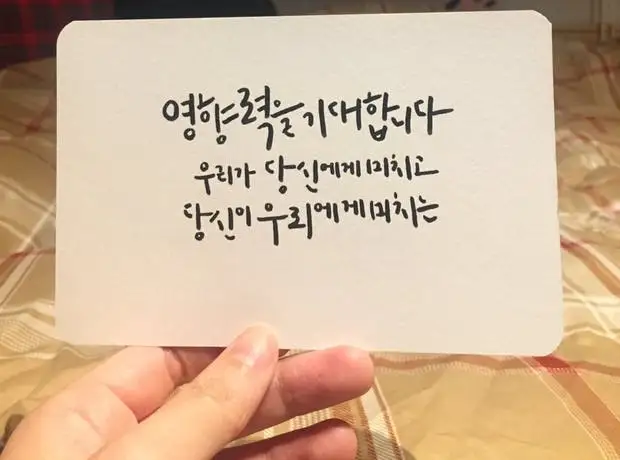 영향력을 기대합니다
우리가 당신에게 미치고
당신이 우리에게 미치는